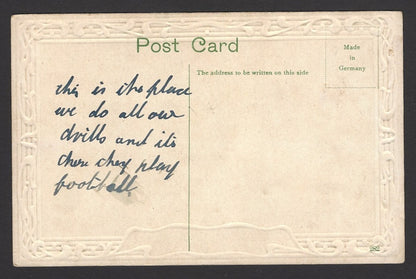 Post Card
Made
in
Germany
The address to be written on this side
this is the place
we do all our
drills and its
there they play
football